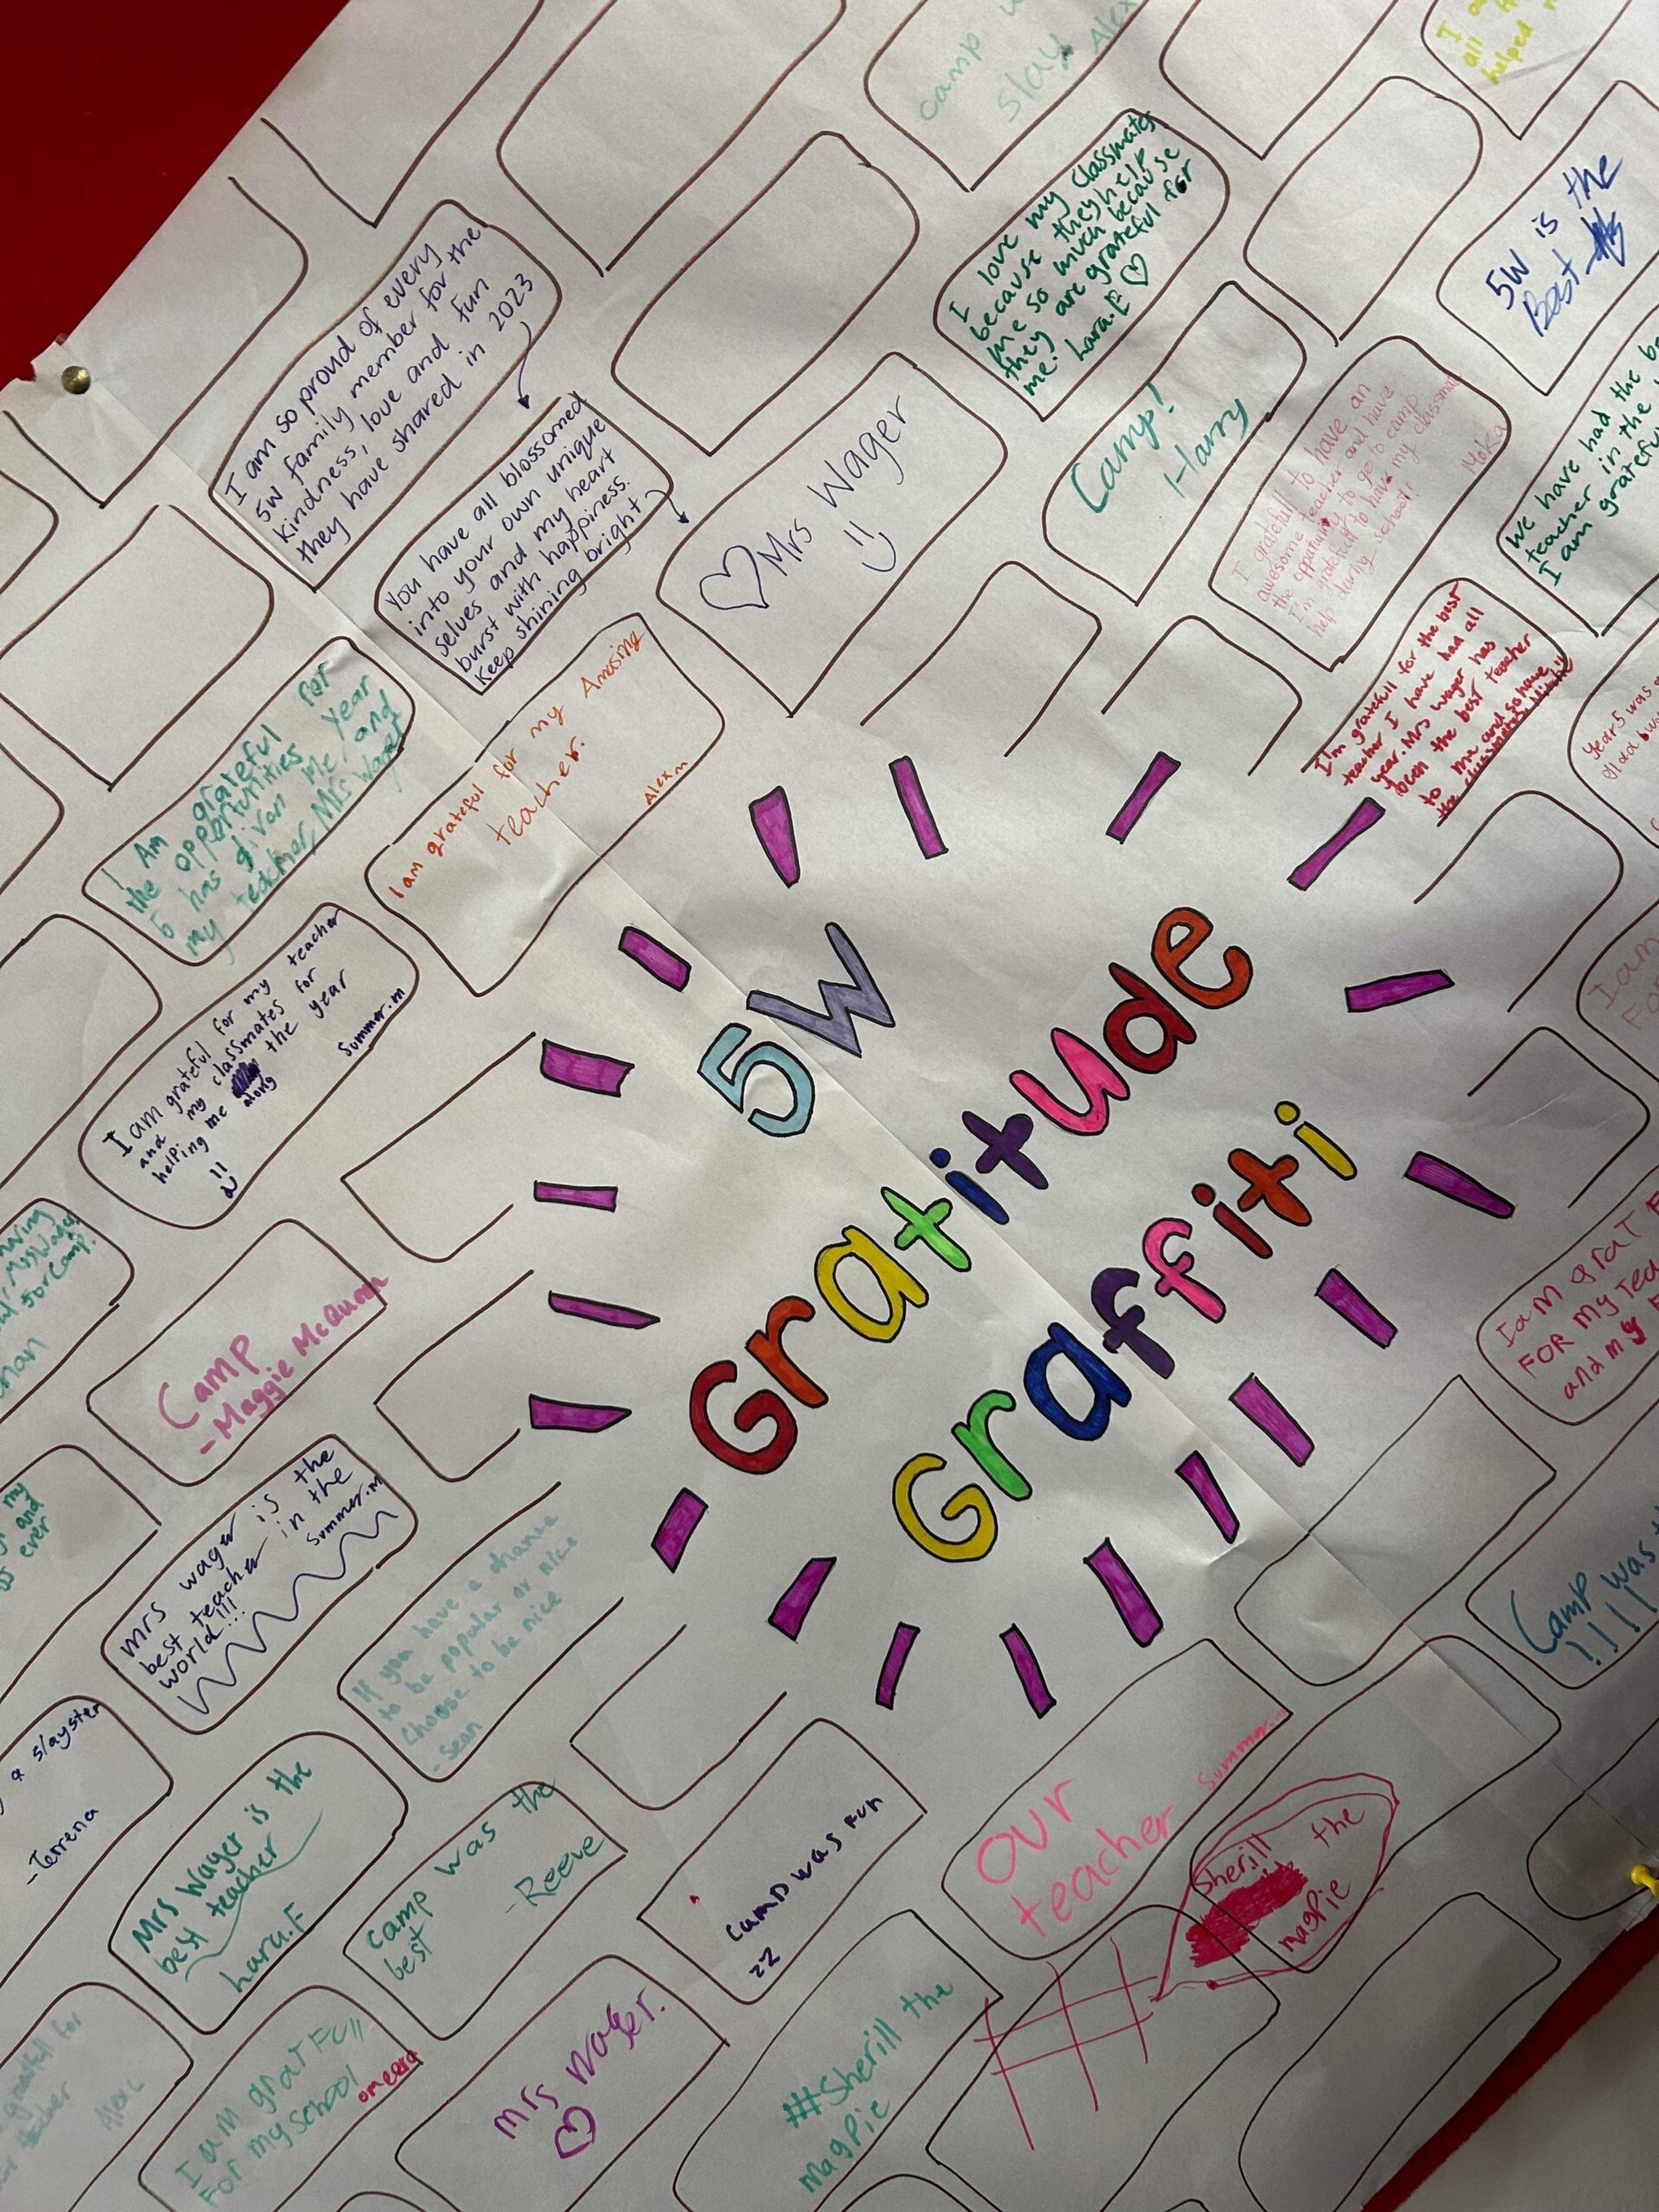 5W
Gratitude
Graffiti
camp
slay
Alex
I
all
helped
I love my classmates
because they help
me so much because
they are grateful for
me. Lara.E
5W is the
Best
I am so proud of every
5W family member for the
kindness, love and fun
they have shared in 2023
You have all blossomed
into your own unique
selves and my heart
burst with happiness.
Keep shining bright
Mrs Wager
Camp!
Harry
I gratefull to have an
awesome teacher and have
the opportunity to go to camp.
I'm gratefull to have my classmates
help during school!
Moka
We have had the
teacher in the
I am grateful
I'm gratefull for the best
teacher I have had all
year. Mrs wager has
been the best teacher
to me and so have
the classmates.
Year 5 was
glad
I Am grateful for
the opportunities year
5 has given me, and
my teacher, Mrs Wager
I am grateful for my Amasing
teacher.
Alex m
I am grateful for my teacher
and my classmates for
helping me along the year
Summer.m
for camp.
Camp
-Maggie McQueen
I am
For
I am grat
FOR my tea
and my
my
and
ever
mrs wager is the
best teacher in the
world!!!
Summer.m
If you have a chance
to be popular or nice
choose to be nice
-Sean
Camp was
!!!!!
a slayster
-Terrena
Mrs Wager is the
best teacher
Lara.F
camp was the
best
-Reeve
camp was Fun
zz
our
teacher
Summer.m
Sherill the
magpie
#
I am gratFull
For my school
omeera
mrs Wager.
##Sherill the
magpie
grateful for
teacher
Alex C